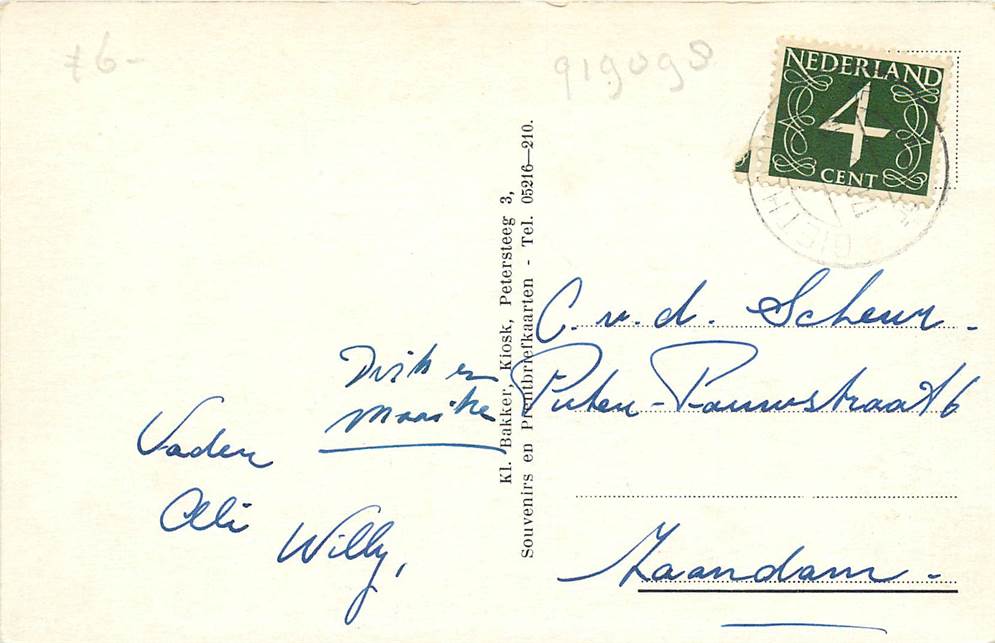 ≠ 6-
919090
NEDERLAND
4
CENT
GIETH
Kl. Bakker, Kiosk, Petersteeg 3,
Souvenirs en Prentbriefkaarten - Tel. 05216—210.
C. v. d. Scheur.
Pauwstraat 6
Zaandam -
Dirk en
Maaike
Vader
Ali
Willy,